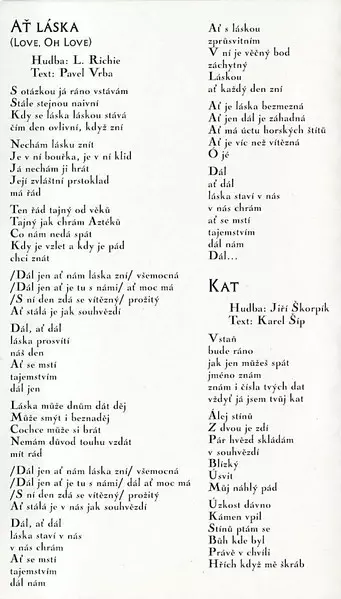 AŤ LÁSKA
(LOVE, OH LOVE)
Hudba: L. Richie
Text: Pavel Vrba
S otázkou já ráno vstávám
Stále stejnou naivní
Kdy se láska láskou stává
čím den ovlivní, když zní
Nechám lásku znít
Je v ní bouřka, je v ní klid
Já nechám ji hrát
Její zvláštní prstoklad
má řád
Ten řád tajný od věků
Tajný jak chrám Aztéků
Co nám nedá spát
Kdy je vzlet a kdy je pád
chci znát
/Dál jen ať nám láska zní/ všemocná
/Dál jen ať je tu s námi/ ať moc má
/S ní den zdá se vítězný/ prožitý
Ať stálá je jak souhvězdí
Dál, ať dál
láska prosvítí
náš den
Ať se mstí
tajemstvím
dál jen
Láska může dnům dát děj
Může smýt i beznaděj
Cochce může si brát
Nemám důvod touhu vzdát
mít rád
/Dál jen ať nám láska zní/ všemocná
/Dál jen ať je tu s námi/ dál ať moc má
/S ní den zdá se vítězný/ prožitý
Ať stálá je v nás jak souhvězdí
Dál, ať dál
láska staví v nás
v nás chrám
Ať se mstí
tajemstvím
dál nám
Ať s láskou
zprůsvitním
V ní je věčný bod
záchytný
Láskou
ať každý den zní
Ať je láska bezmezná
Ať jen dál je záhadná
Ať má úctu horských štítů
Ať je víc než vítězná
Ó jé
Dál
ať dál
láska staví v nás
v nás chrám
ať se mstí
tajemstvím
dál nám
Dál...
KAT
Hudba: Jiří Škorpík
Text: Karel Šíp
Vstaň
bude ráno
jak jen můžeš spát
jméno znám
znám i čísla tvých dat
vždyť já jsem tvůj kat
Alej stínů
Z dvou je zdí
Pár hvězd skládám
v souhvězdí
Blízký
Úsvit
Můj náhlý pád
Úzkost dávno
Kámen vpil
Stínům ptám se
Bůh kde byl
Právě v chvíli
Hřích když mě škráb